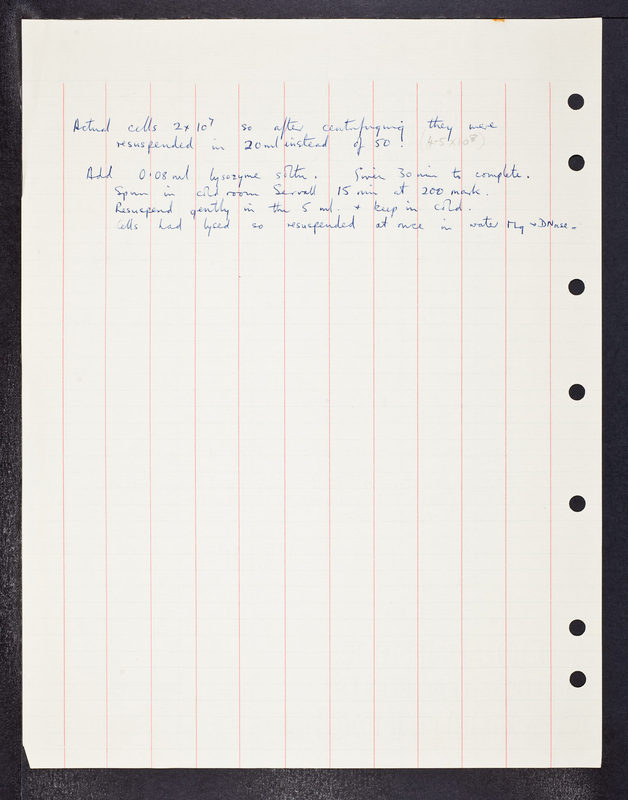 Actual cells 2 x 10⁷ so after centrifuging they were
resuspended in 20 ml instead of 50! (4.5 x 10⁸)
Add 0.08 ml lysozyme soltn. Given 30 min to complete.
Spun in cold room Servall 15 min at 200 mark.
Resuspend gently in the 5 ml. + keep in cold.
Cells had lysed so resuspended at once in water Mg + DNase.